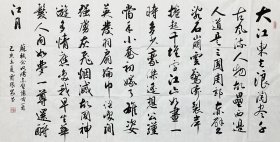 大江東去浪淘尽千
古風流人物故壘西邊
人道是三國周郎赤壁
亂石崩雲驚濤裂岸
捲起千堆雪江山如畫一
時多少豪杰遥想公瑾
當年小喬初嫁了雄姿英
發羽扇綸巾談笑間
强虜灰飛煙滅故國神
遊多情應笑我早生華
髮人間如夢一尊還酹
江月